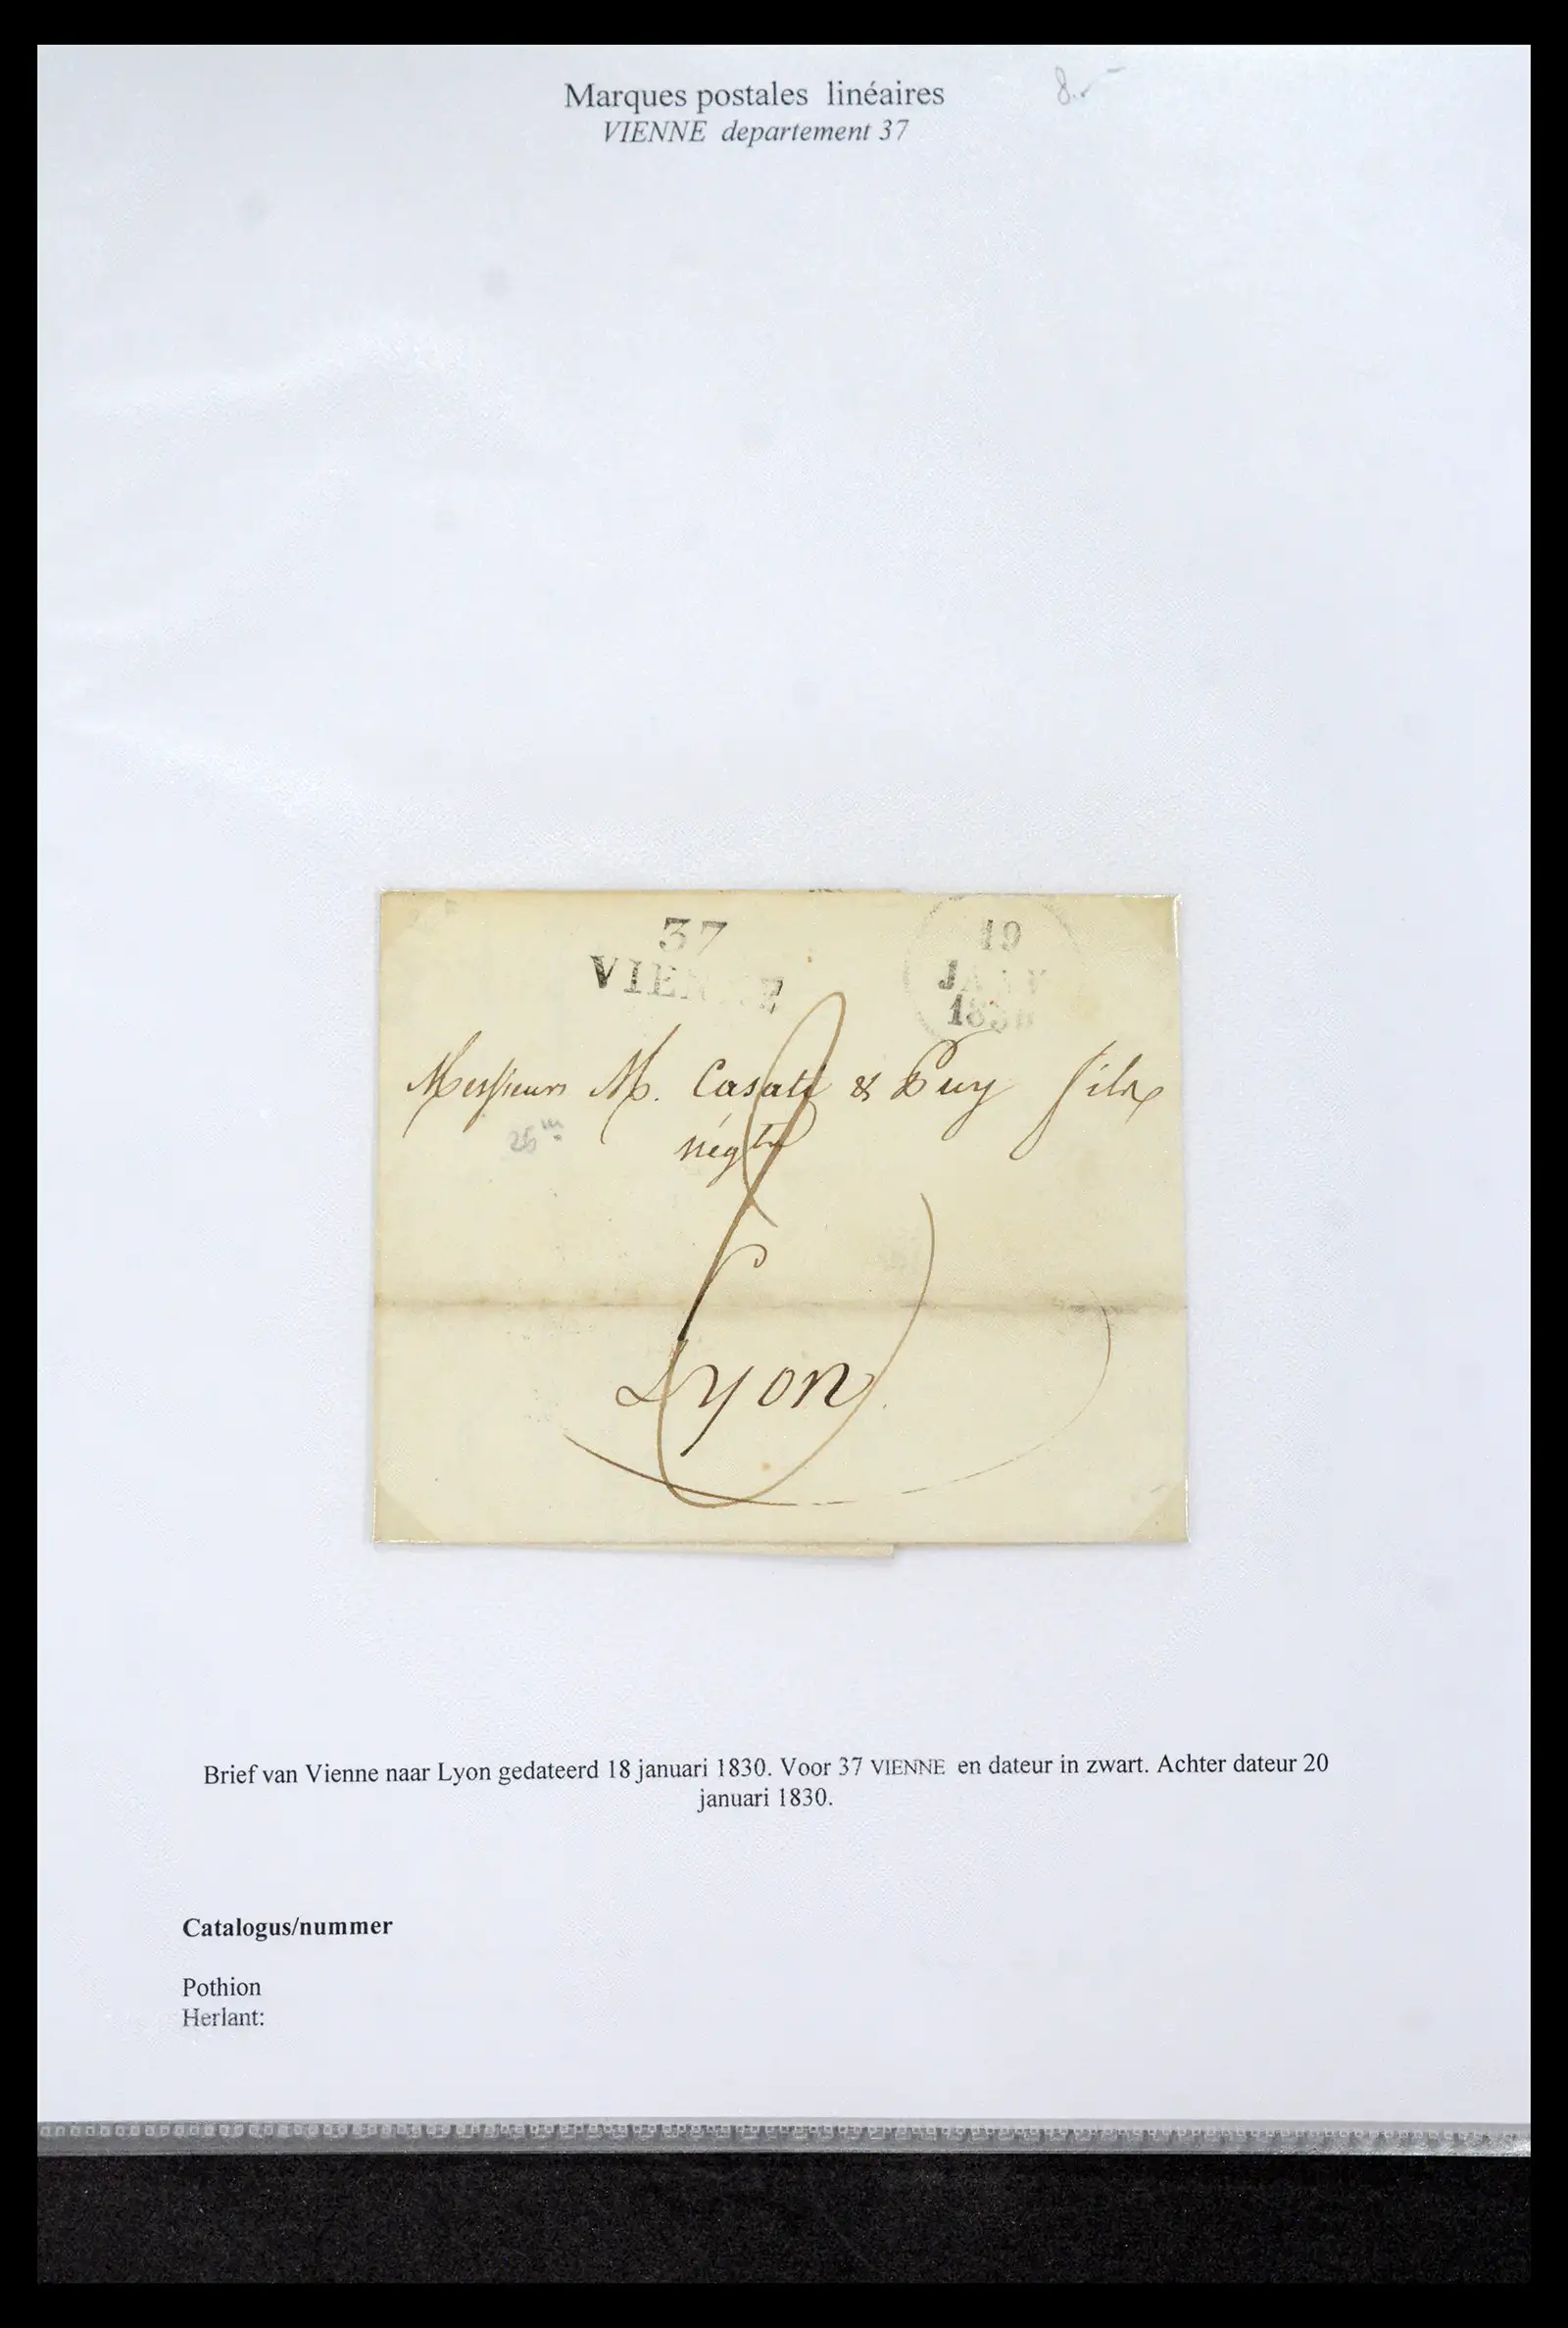 Marques postales linéaires
8.-
VIENNE departement 37
37
VIENNE
19
JANV
1830
Messieurs M. Casati & Puy fils
négts
25mm
Lyon
Brief van Vienne naar Lyon gedateerd 18 januari 1830. Voor 37 VIENNE en dateur in zwart. Achter dateur 20
januari 1830.
Catalogus/nummer
Pothion
Herlant: